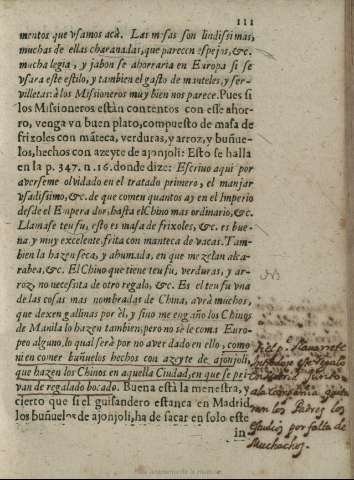 111
mentos que vsamos acà. Las mesas son lindissimas,
muchas de ellas charanadas, que parecen espejos, &c.
mucha legia, y jabon se ahorraria en Europa si se
vsara este estilo, y tambien el gasto de manteles, y ser-
villetas: à los Missioneros muy bien nos parece. Pues si
los Missioneros estàn contentos con esse ahor-
ro, venga vn buen plato, compuesto de masa de
frizoles con mãteca, verduras, y arroz, y buñue-
los, hechos con azeyte de ajonjoli: Esto se halla
en la p. 347. n. 16. donde dize: Escriuo aqui por
averseme olvidado en el tratado primero, el manjar
vsadissimo, &c. de que comen quantos ay en el Imperio
desde el Emperador, hasta el Chino mas ordinario, &c.
Llamase teu fu, esto es masa de frixoles, &c. es bue-
na, y muy excelente, frita con manteca de vacas. Tam-
bien la hazen seca, y ahumada, en que mezclan alca-
rabea, &c. El Chino que tiene teu fu, verduras, y ar-
roz, no necessita de otro regalo, &c. Es el teu fu vna
de las cosas mas nombradas de China, avrà muchos,
que dexen gallinas por èl, y sino me engaño los Chinos
de Manila lo hazen tambien, pero no se lo come Euro-
peo alguno, lo qual serà por no aver dado en ello, como
ni en comer buñuelos hechos con azeyte de ajonjoli,
que hazen los Chinos en aquella Ciudad, en que se pri-
van de regalado bocado. Buena està la menestra, y
cierto que si el guisandero estanca en Madrid
los buñuelos de ajonjoli, ha de sacar en solo este
in
el P. Navarrete
este regalo
en Madrid
a la Compañia
los Padres los
por falta de
Muchachos